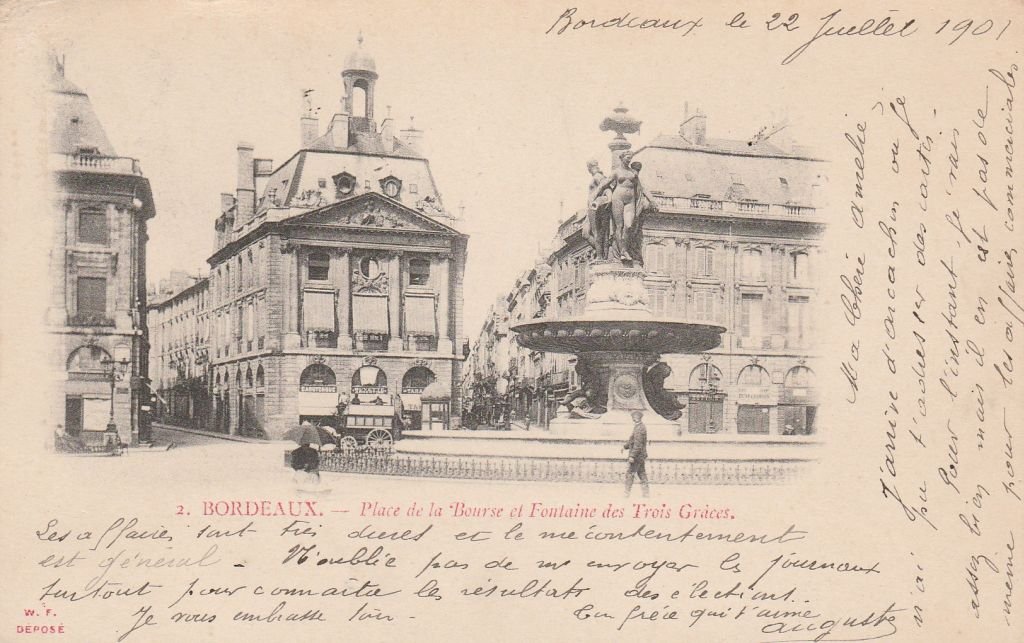 Bordeaux le 22 Juillet 1901
Ma Chère Amélie
J'arrive d'arcachon où je
n'ai pu t'adresser des cartes.
Pour l'instant je vais
assez bien mais il en est pas de
même pour les affaires commerciales.
2. BORDEAUX. — Place de la Bourse et Fontaine des Trois Grâces.
Les affaires sont très dures et le mécontentement
est général. N'oublie pas de m'envoyer les journaux
surtout pour connaitre les résultats des élections.
Je vous embrasse
Ton qui t'aime
Auguste
W. F.
DÉPOSÉ